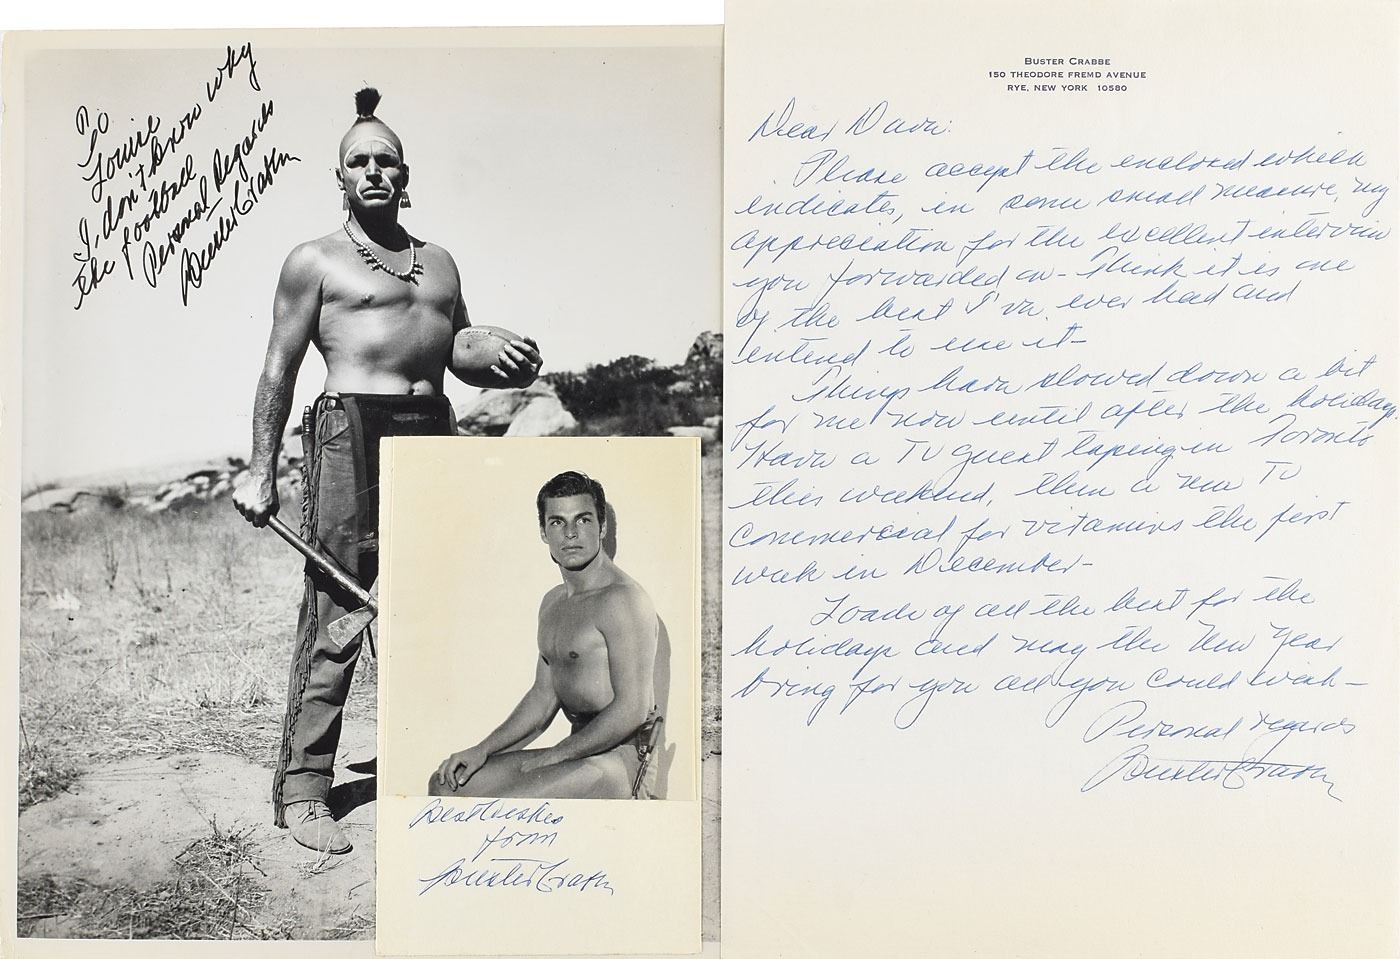 To
Louie
I don't know why
the football
Personal Regards
Buster Crabbe
Best Wishes
from
Buster Crabbe
BUSTER CRABBE
150 THEODORE FREMD AVENUE
RYE, NEW YORK 10580
Dear Dave:
Please accept the enclosed which
indicates, in some small measure, my
appreciation for the excellent interview
you forwarded on - think it is one
of the best I've ever had and
intend to use it -
Things have slowed down a bit
for me now until after the holidays.
Have a TV guest taping in Toronto
this weekend, then a new TV
commercial for vitamins the first
week in December -
Loads of all the best for the
holidays and may the New Year
bring for you all you could wish -
Personal regards
Buster Crabbe